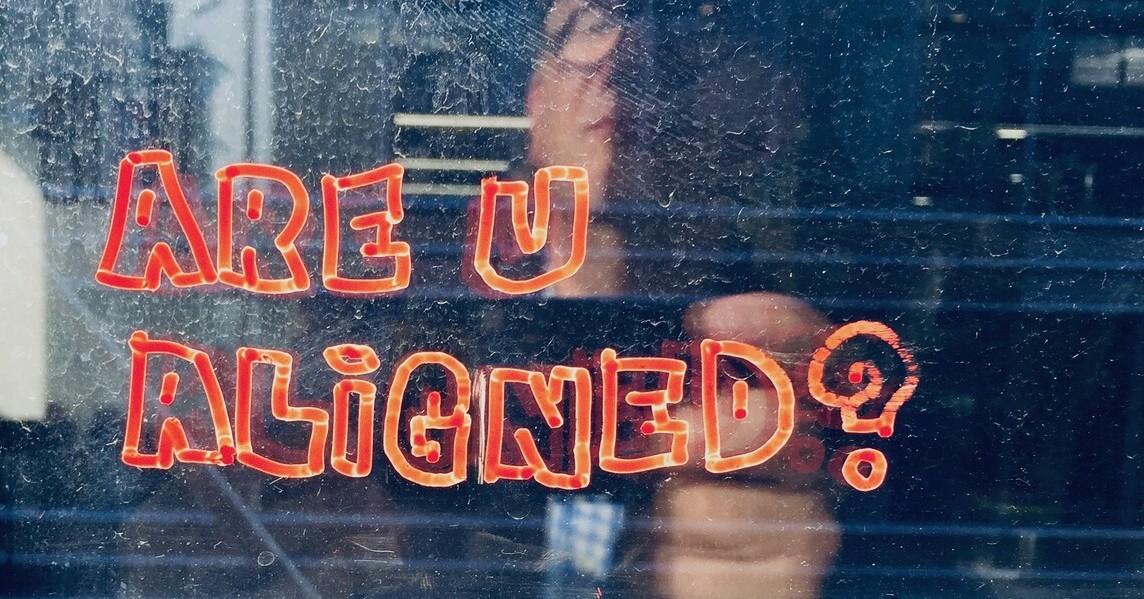 ARE U
ALiGNED?